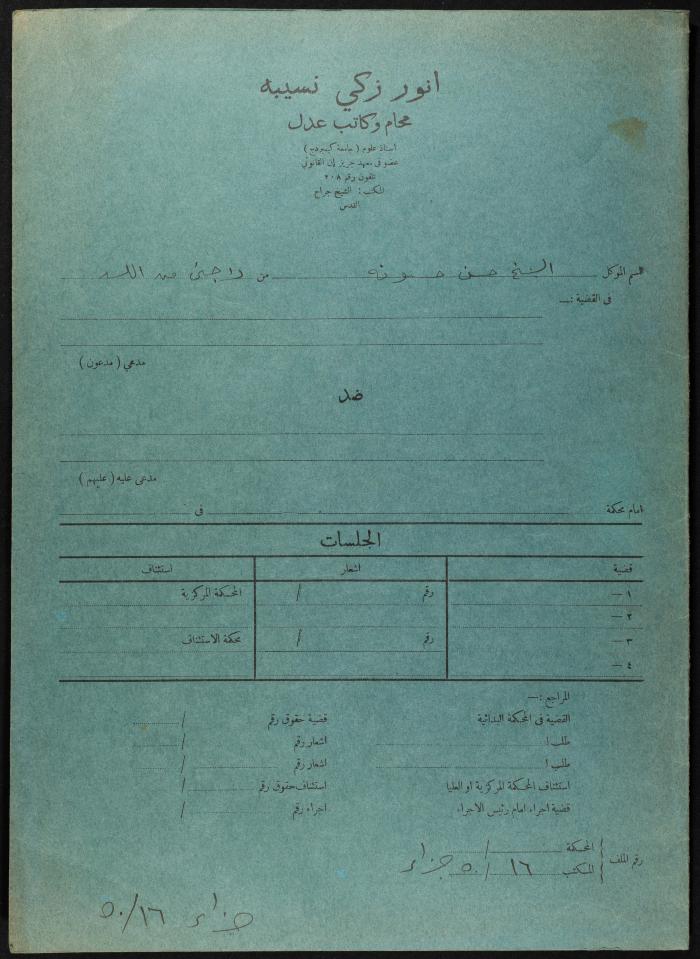 انور زكي نسيبه
محام وكاتب عدل
استاذ علوم (جامعة كيمبردج)
عضو في معهد جريز إن القانوني
تلفون رقم ٢٠٨
المكتب : الشيخ جراح
القدس
اسم الموكل الشيخ حسن حسونه من لاجئ من اللد
في القضية :—
مدعي (مدعون)
ضد
مدعى عليه (عليهم)
امام محكمة في
الجلسات
قضية اشعار استئناف
١ — رقم / المحكمة المركزية
٢ —
٣ — رقم / محكمة الاستئناف
٤ —
المراجع :—
القضية في المحكمة البدائية قضية حقوق رقم /
طلب ا اشعار رقم /
طلب ا اشعار رقم /
استئناف المحكمة المركزية او العليا استئناف حقوق رقم /
قضية اجراء امام رئيس الاجراء اجراء رقم /
رقم الملف { المحكمة /
المكتب ١٦ / ٥٠ جزاء }
جزاء ٥٠/١٦